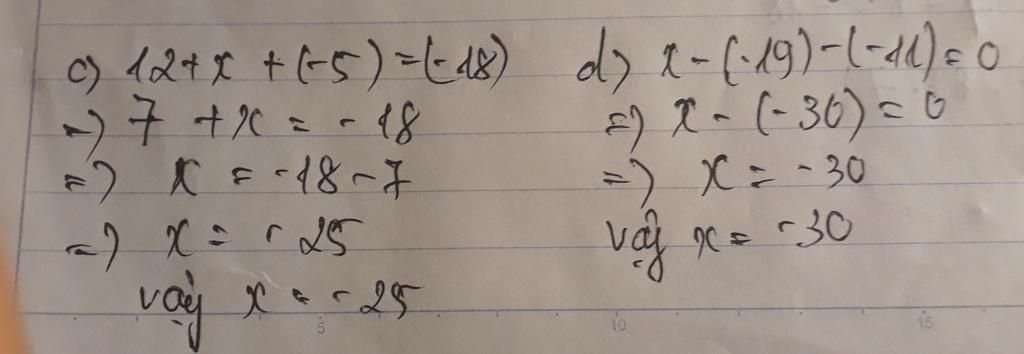 c) 12 + x + (-5) = (-18)
=) 7 + x = -18
=) x = -18 - 7
=) x = -25
vậy x = -25
d) x - (-19) - (-11) = 0
=) x - (-30) = 0
=) x = -30
vậy x = -30
5 10 15